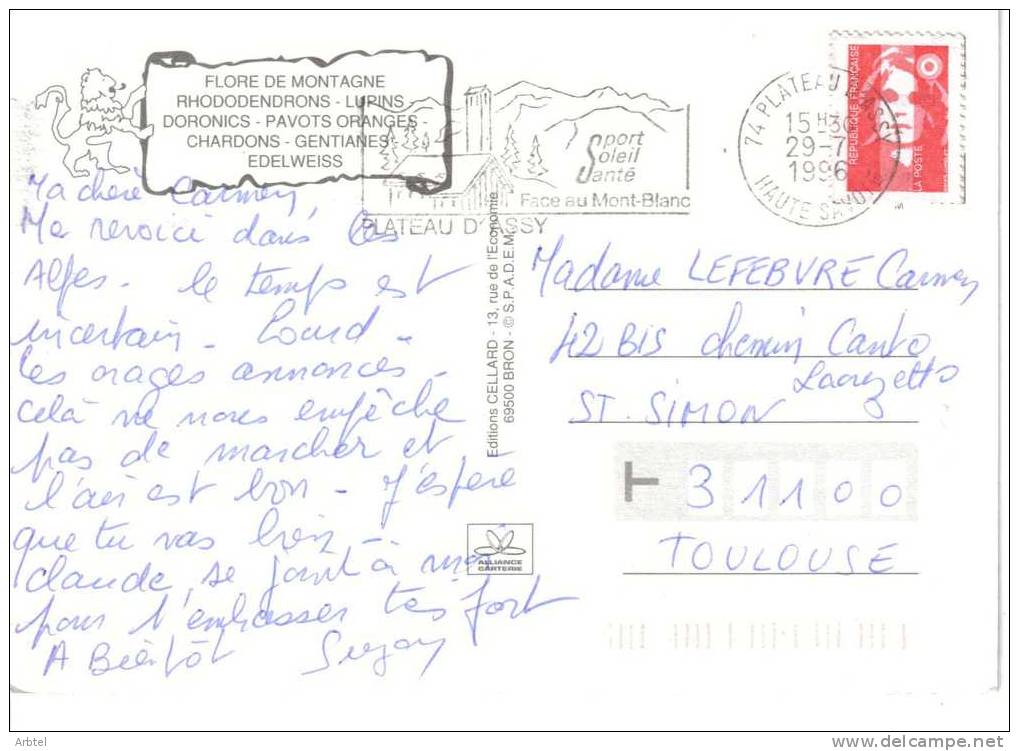 FLORE DE MONTAGNE
RHODODENDRONS - LUPINS
DORONICS - PAVOTS ORANGES -
CHARDONS - GENTIANES
EDELWEISS
Sport
Soleil
Santé
Face au Mont-Blanc
PLATEAU D'ASSY
74 PLATEAU D'ASSY
15H3
29-7
1996
HAUTE SAVOIE
RÉPUBLIQUE FRANÇAISE
LA POSTE
Ma chère Carmen,
Me revoici dans les
Alpes. le temps est
incertain - Lourd -
les orages annoncés -
celà ne nous empêche
pas de marcher et
l'air est bon - J'espère
que tu vas bien -
claude, se joint à moi
pour t'embrasser très fort
A Bientôt Suzon
Editions CELLARD - 13, rue de l'Economie
69500 BRON - © S.P.A.D.E.M.
ALLIANCE
CARTERIE
Madame LEFEBVRE Carmen
42 BIS chemin Canto
Lacrezetto
ST. SIMON
31100
TOULOUSE
Arbtel
www.delcampe.net